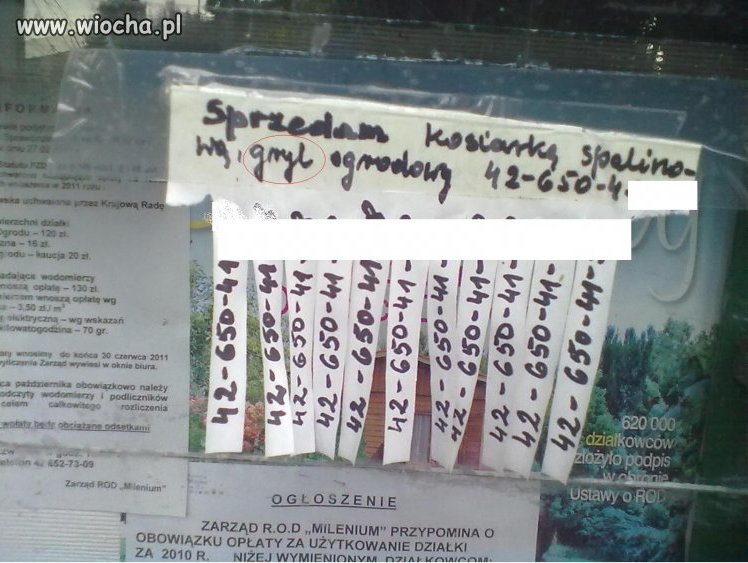 www.wiocha.pl
Sprzedam kosiarkę spalino-
wą, gryl ogrodowy 42-650-4
42-650-41
42-650-41
42-650-41-
42-650-41
42-650-41
42-650-41-
42-650-41-
42-650-41-
42-650-41-
42-650-41-
42-650-41-
INFORM
w 2011 roku :
uchwalona przez Krajową Radę
działki
ogrodu – 120 zł.
– 16 zł.
– kaucja 20 zł.
wodomierzy
wnoszą opłatę – 130 zł.
wnoszą opłatę wg
– 3,50 zł./ m³
elektryczną – wg wskazań
kilowatogodzina – 70 gr.
wnosimy do końca 30 czerwca 2011
Zarząd wywiesi w oknie biura.
października obowiązkowo należy
odczyty wodomierzy i podliczników
celem całkowitego rozliczenia
wpłaty będą obciążane odsetkami
652-73-09
Zarząd ROD „Milenium”
620 000
działkowców
złożyło podpis
w obronie
Ustawy o ROD
OGŁOSZENIE
ZARZĄD R.O.D „MILENIUM” PRZYPOMINA O
OBOWIĄZKU OPŁATY ZA UŻYTKOWANIE DZIAŁKI
ZA 2010 R. NIŻEJ WYMIENIONYM DZIAŁKOWCOM: